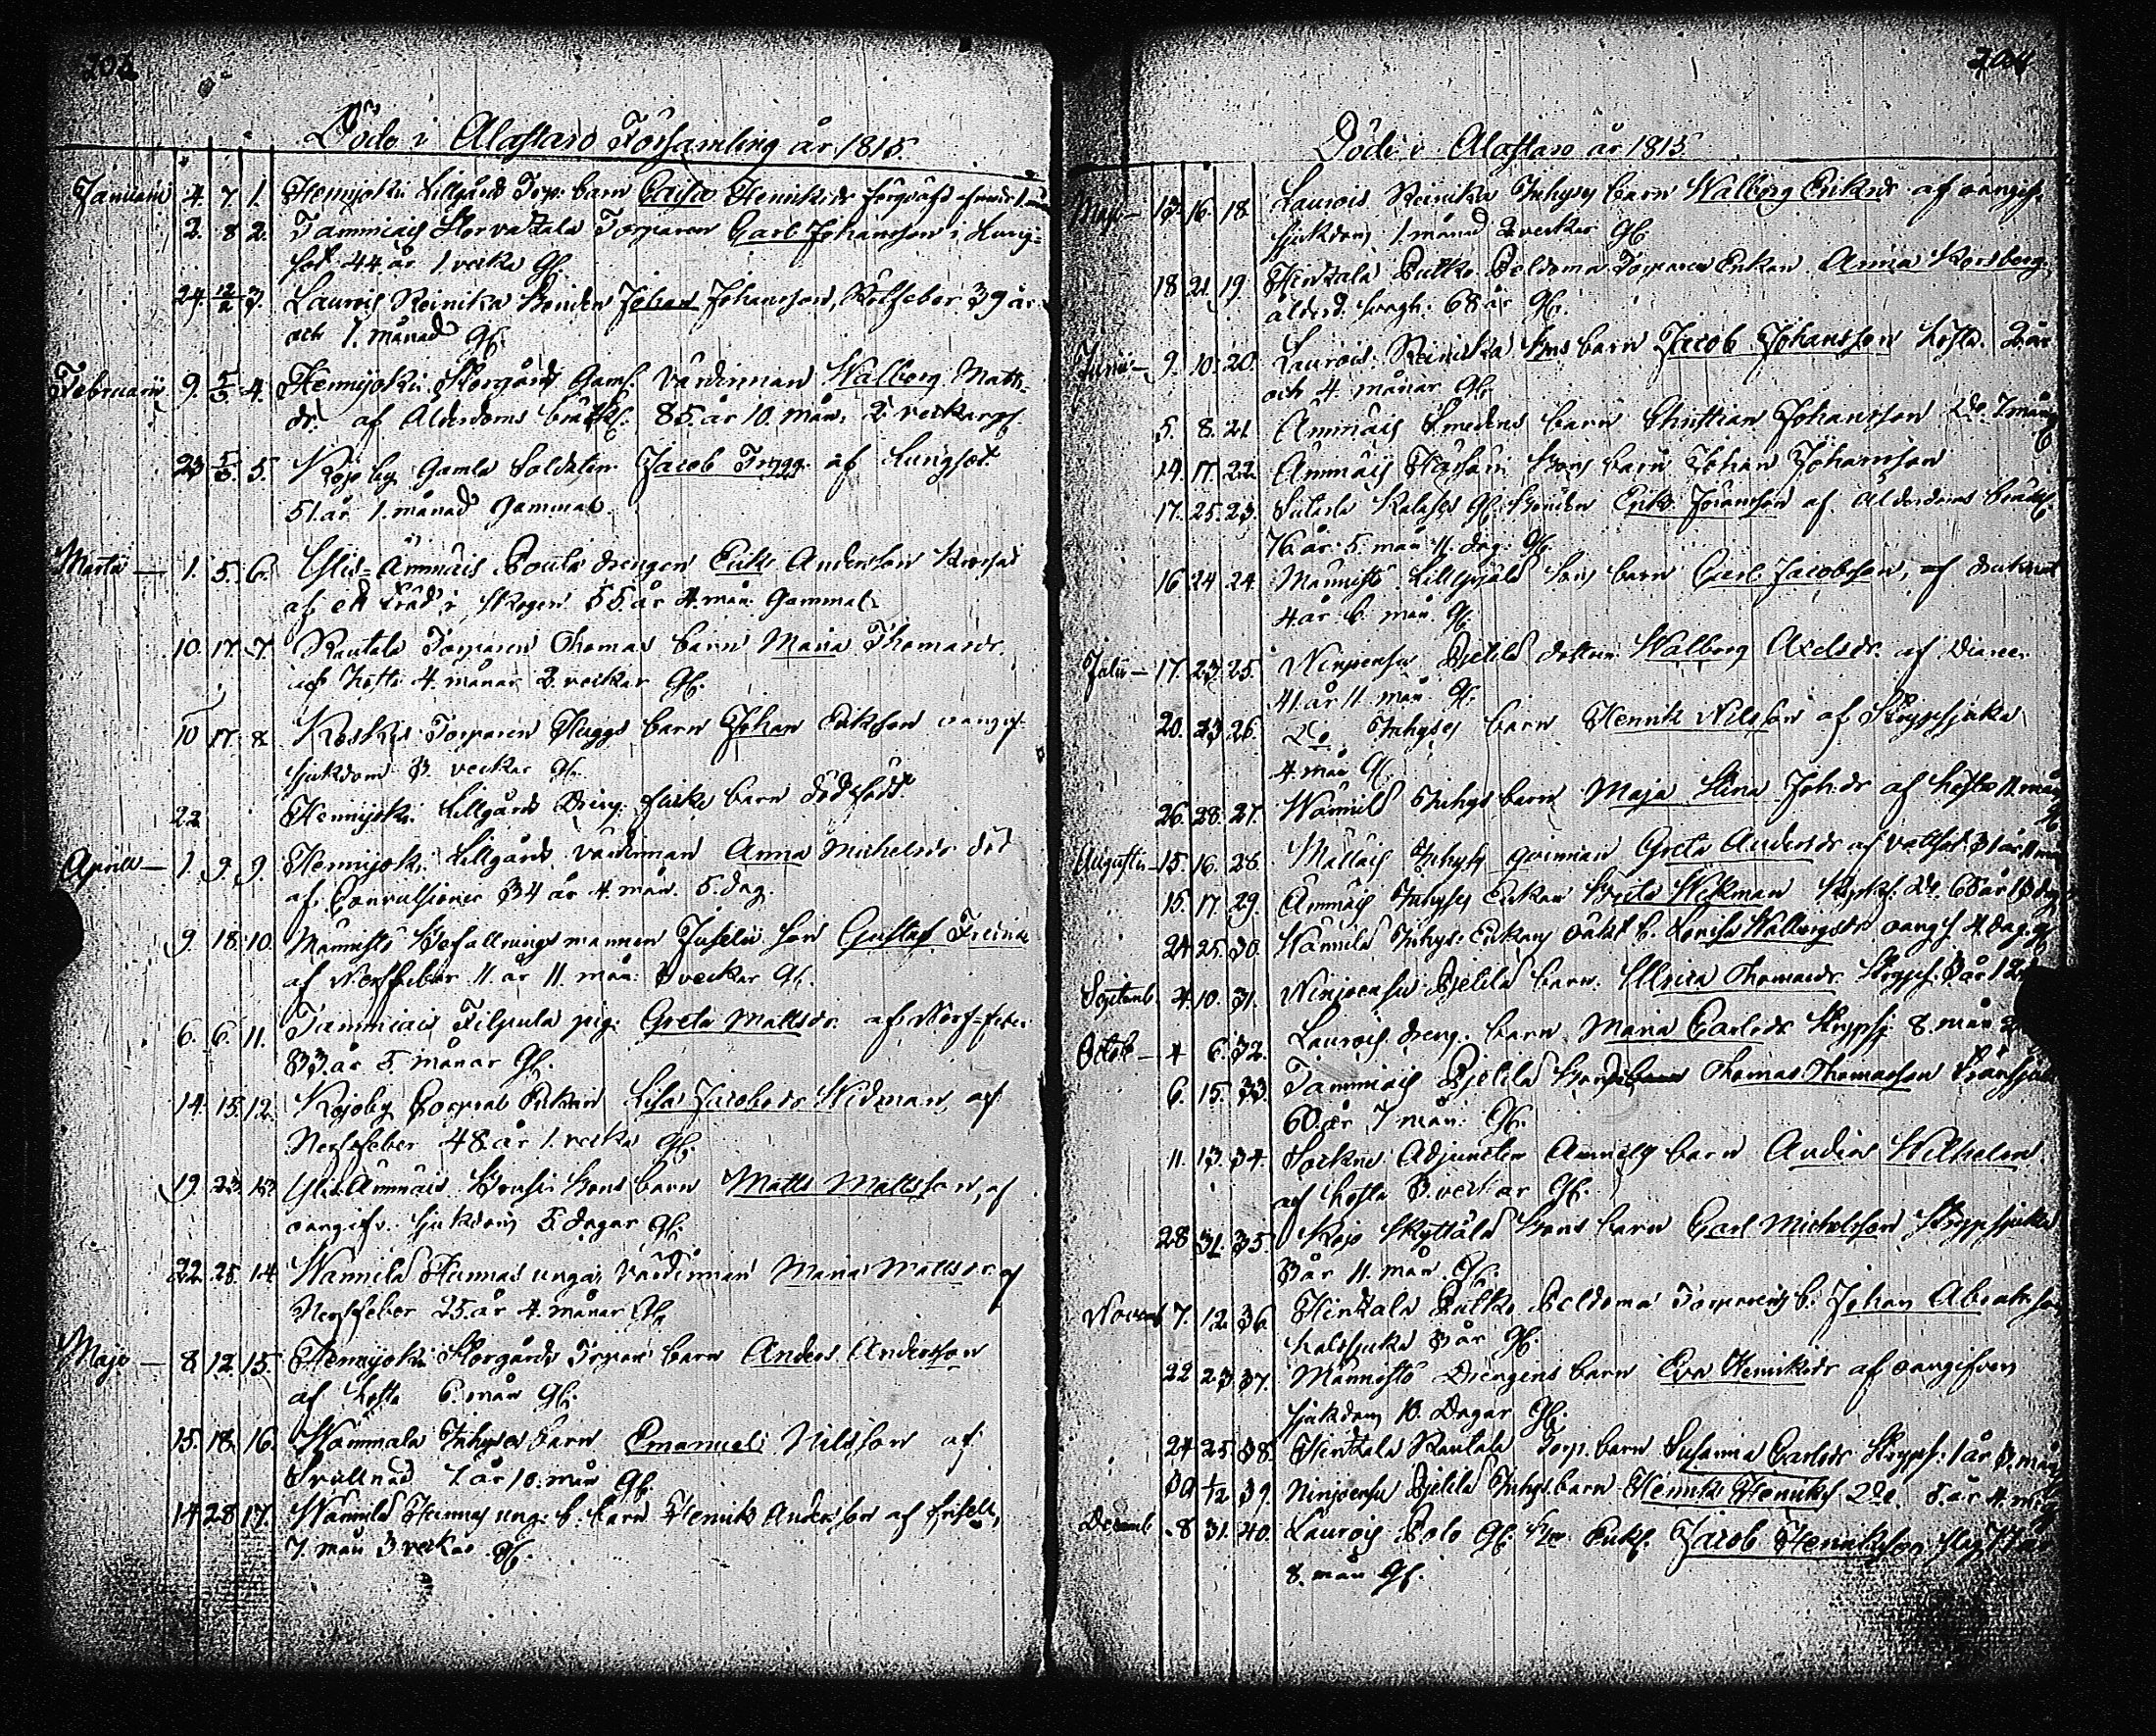 203
Döde i Alastaro Församling år 1815.
Januarii 4. 7 1. Hennijoki Lillgårds Torp. barn Caisa Henriksdr
2. 8 2. Tammiais Storvatala Torparen Carl Johansson, Lung-
sot 44 år 1 vecka Gf.
24. 12/2 3. Laurois Reinika Bonden Johan Johansson, Rötfeber 39 år
och 1. månad Gf.
Februarii 9. 5/3 4. Hennijoki Storgårds Gaml. värdinnan Walborg Matts-
dr. af Ålderdoms bräckl. 85. år 10. mån. 2. veckar gf.
23 5/3 5. Kojo by Gamla Soldaten Jacob Trygg af Lungsot
51. år 1. månad Gammal.
Martii — 1. 5. 6. Ylis-Ämmäis Poula drengen Erik Andersson
af ett träd i skogen 55. år 4. mån. Gammal.
10. 17. 7. Rautala Torparen Thomas barn Maria Thomasdr.
af Hosta 4. månar 3. veckar Gf.
10 17. 8 Koskis Torparen Huggs barn Johan Eriksson oangif.
sjukdom 3. veckar Gf.
22 Hennijoki Lillgårds Dreng barn dödfödt
Aprill — 1. 9. 9. Hennijoki Lillgårds värdinnan Anna Michelsdr död
af Convulsioner 34 år 4. mån. 5. dag.
9. 18. 10. Männistö Befallningsmannen Juselii son Gustaf
af Nerffeber 11. år 11. mån. 3 veckar Gf.
6. 6. 11. Tammiais Tilpula pig. Greta Mattsdr. af Nerf-feber
33. år 5. månar Gf.
14. 15. 12. Kojoby Corporal Enkan Lisa Jacobsdr Widman, af
Nerffeber 48. år 1. vecka Gf.
19. 23. 13 Ylis Ämmäis Bonsi Bons barn Matts Mattsson, af
oangifv. sjukdom 5. dagar Gf.
22. 25. 14 Wännilä Hannas unga värdinnan Maria Mattsdr. af
Nerffeber 25. år 4. månar Gf.
Maji — 8. 12. 15. Hennijoki Storgårds Torpar barn Anders Andersson
af Hosta 6. mån Gf.
15. 18. 16. Wammala Inhyses barn Emanuel Nilsson af
Svullnad 7. år 10. mån Gf.
14. 28 17. Wännilä Hannas ung. b. barn Henrik Andersson af
7. mån 3 veckar Gf.
204
Döde i Alastaro år 1815
Maji — 13. 16. 18 Laurois Reinika Inhyses barn Walborg Eriksdr af oangif.
sjukdom 1. månad 2 veckar Gf.
18 21 19. Hirtzala Putko Peldoma Torparen Enkan Anna
ålderd. svagh. 68 år Gf.
Junii — 9. 10. 20. Laurois Reinika Bns barn Jacob Johansson Hosta. 2. år
och 4. månar Gf.
5. 8. 21 Ämmäis Smedens barn Christian Johansson Do. 7 mån
14. 17. 22 Ämmäis Bons barn Johan Johansson
17. 25. 23. Sutarla Gf. Bonden Erik Johansson af Ålderdoms bräckl.
76. år 5. mån 11. dag. Gf.
16 24 24. Männistö Bons barn Carl Jacobsson, af drunknat
4 år 6. mån. Gf.
Julii — 17. 23. 25. Ninjoensu Pjelilä dottern Walborg Axelsdr. af Diarre
41. år 11. mån. Gf.
20. 23 26. Do Inhyses barn Henrik Nilsson af Strypsjuka
4. mån Gf.
26. 28. 27. Wännilä Inhys barn Maja Stina Joh.dr af Hosta 11. mån
Augustii — 15. 16. 28. Mällais Inhyses qvinnan Greta Andersdr af vattsot. 31 år
15. 17. 29. Ämmäis Inhyses Enkan Beata Wekman 68 år
24 25. 30. Wännilä Inhyses Enkans oäkt. b. Lovisa Wallborgsdr oangif. 4. dag. gf
Septemb. 4. 10. 31. Ninjoensu Pjelilä barn Ulrica Thomasdr. Strypsj. 3. år
Octob — 4 6. 32. Laurois dreng. barn Maria Carlsdr Strypsj. 8. mån
6. 15. 33. Tammiais Pjelilä Bonden Thomas Thomasson
60. år 7 mån. Gf.
11. 13. 34. Sockne Adjuncten barn Anders Wilhelm
af Hosta 3. veckar Gf.
28 31. 35. Kojo Skyttälä Bons barn Carl Michelsson Strypsjuka
3 år 11. mån. Gf.
Novemb 7. 12. 36. Hirtzala Putko Peldoma Torparens b. Johan
Halssjuka 3 år Gf.
22 23 37. Männistö Drengens barn Eva Henriksdr af oangifven
sjukdom 10. Dagar Gf.
24 25 38. Hirtzala Rautala Torp. barn Susanna Carlsdr Strypsj. 1 år 3. mån
30 1/12 39. Ninjoensu Pjelilä Inhys.barn Henrik Henriks. Do. 5. år 4. mån
Decemb 8 31. 40. Laurois Polo Gf. Jacob Henriksson 77 år
8. mån Gf.